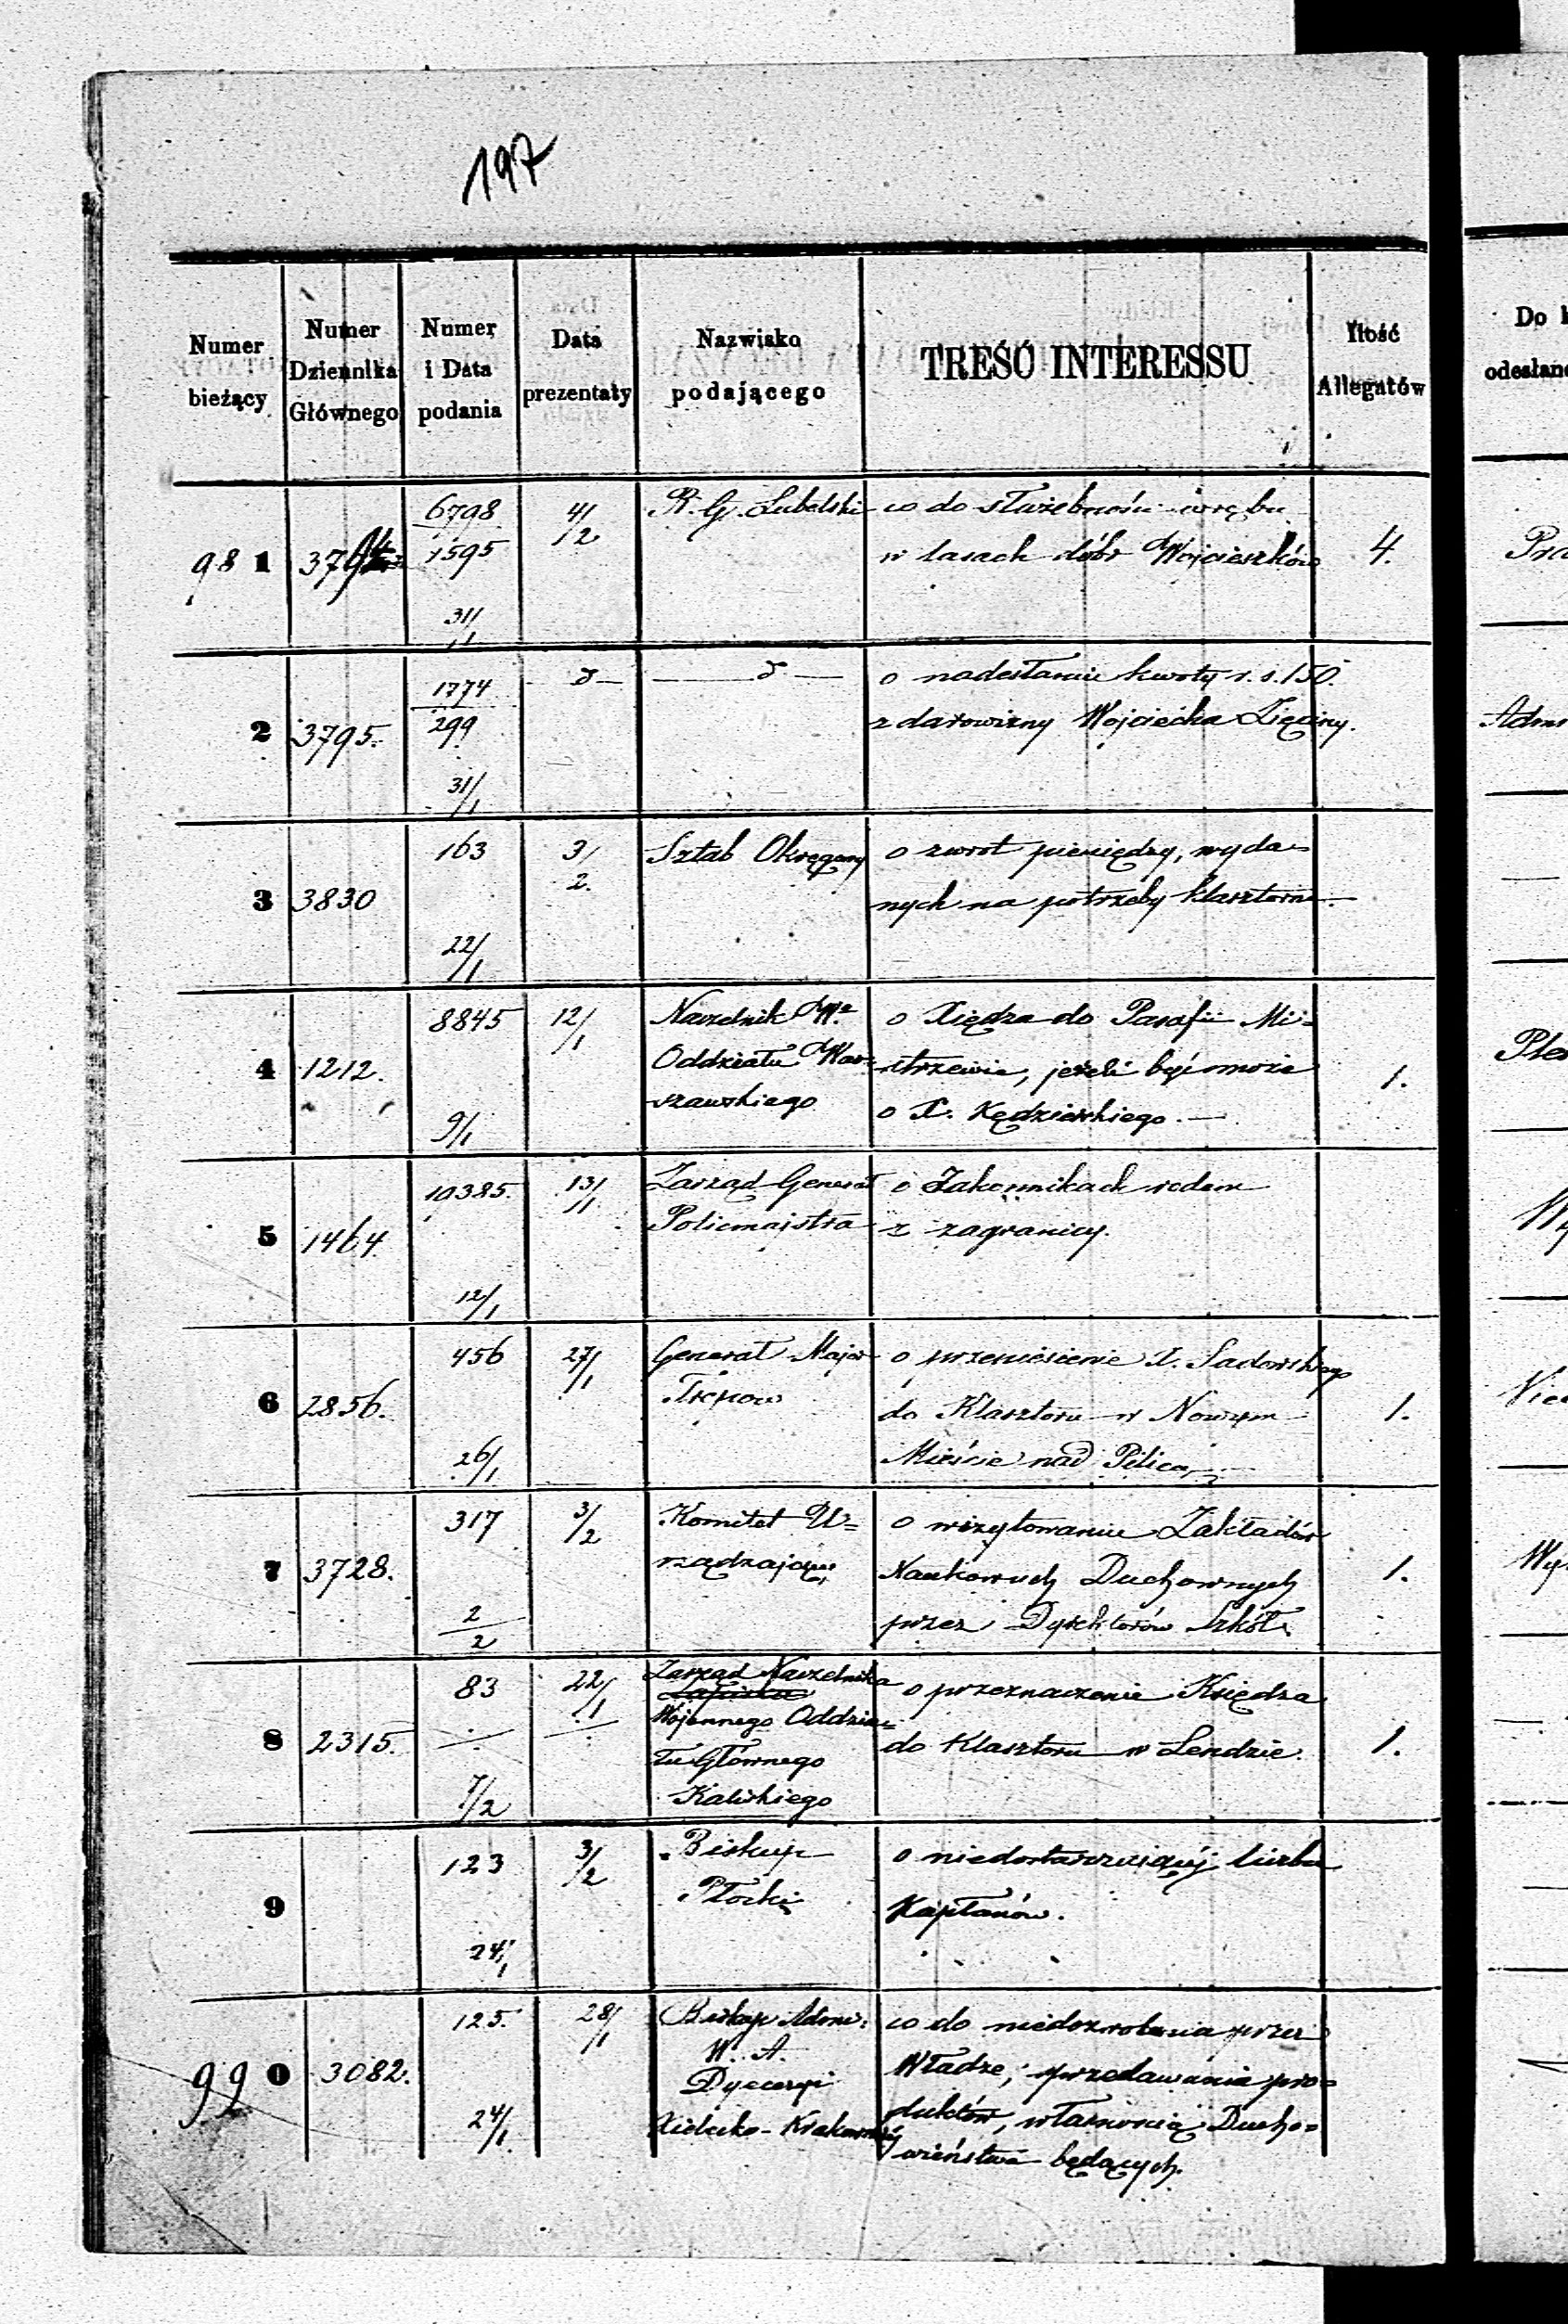 197
Numer bieżący
Numer Dziennika Głównego
Numer i Data podania
Data prezentaty
Nazwisko podającego
TREŚĆ INTERESSU
Ilość Allegatów
Do
odesłan
98 1
6798
1595
31/1
4/2
R. G. Lubelski
co do służebności wrębu
w lasach dóbr Wojcieszków
4.
2
3795.
1774
299
31/1
o nadesłanie kwoty r. s. 150.
z darowizny Wojciecha
3
3830
163
22/1
3/2.
Sztab Okręgowy
o zwrot pieniędzy, wyda=
nych na potrzeby klasztorne.
4
1212.
8845
9/1
12/1
Naczelnik
Oddziału War=
szawskiego
o Xiędza do Parafii Mi=
strzewie, jeżeli być może
o X. Kędzierskiego. —
1.
5
1464
10385.
12/1
13/1
Zarząd Generał
Policmajstra
o Zakonnikach rodem
z zagranicy.
6
2856.
456
26/1
27/1
Generał Major
Trepow
o przeniesienie X. Sadowskiego
do Klasztoru w Nowym
Mieście nad Pilicą
1.
7
3728.
317
2/2
3/2
Komitet U=
rządzający
o wizytowanie Zakładów
Naukowych Duchownych
przez Dyrektorów Szkół
1.
8
2315.
83
7/2
22/1
Zarząd Naczelnika
Wojennego Oddzia=
łu Głównego
Kaliskiego
o przeznaczenie Księdza
do Klasztoru w Lendzie.
1.
9
123
24/1
3/2
Biskup
Płocki
o niedostarczającej liczbie
Kapłanów.
99 0
3082.
125.
24/1
28/1
Biskup Adm:
Dyecezyi
Kielecko-Krakowskiej
co do niedozwolenia przez
Władze, sprzedawania pro=
duktów, własnością Ducho=
wieństwa będących.